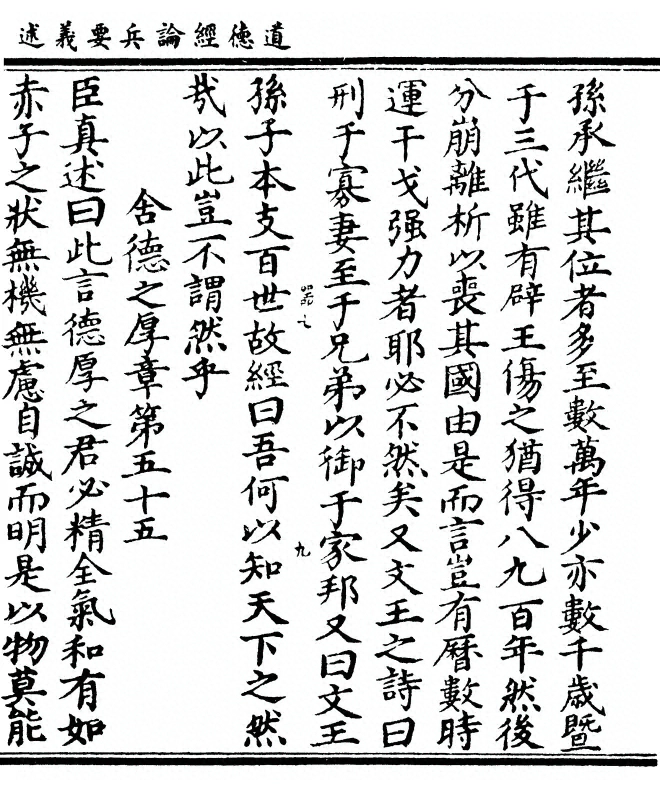 道德經論兵要義述
孫承繼其位者多至數萬年少亦數千歲暨
于三代雖有辟王傷之猶得八九百年然後
分崩離析以喪其國由是而言豈有曆數時
運干戈强力者耶必不然矣又文王之詩曰
刑于寡妻至于兄弟以御于家邦又曰文王
九
孫子本支百世故經曰吾何以知天下之然
㢤以此豈不謂然乎
含德之厚章第五十五
臣真述曰此言德厚之君必精全氣和有如
赤子之狀無機無慮自誠而明是以物莫能